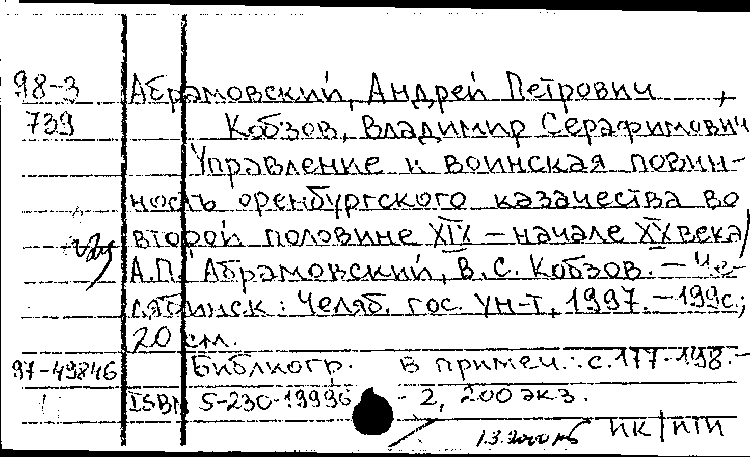 98-3 Абрамовский, Андрей Петрович,
739 Кобзов, Владимир Серафимович
Управление и воинская повин-
ность оренбургского казачества во
второй половине XIX – начале XX века /
А.П. Абрамовский, В.С. Кобзов. – Че-
лябинск : Челяб. гос. ун-т, 1997. – 199с.;
20 см.
97-49846 Библиогр. в примеч.: с. 177-198. –
ISBN 5-230-19996 - 2, 200 экз.
ПК/ПТИ